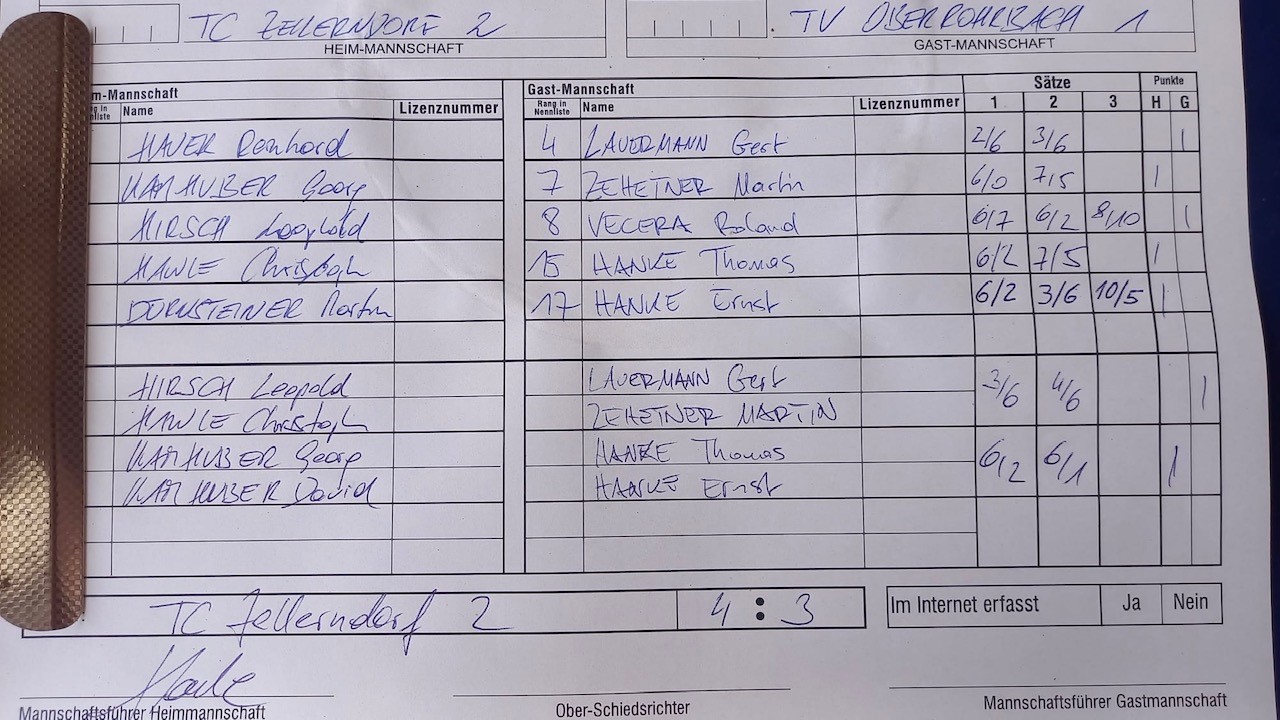 TC ZELLERNDORF 2 TV OBERROHRBACH 1
HEIM-MANNSCHAFT GAST-MANNSCHAFT
m-Mannschaft Gast-Mannschaft Sätze Punkte
Name Lizenznummer Rang in Nennliste Name Lizenznummer 1 2 3 H G
HAUER Reinhard 4 LAUERMANN Gert 2/6 3/6 1
KAMHUBER Georg 7 ZEHETNER Martin 6/0 7/5 1
HIRSCH Leopold 8 VECERA Roland 6/7 6/2 8/10 1
HAWLE Christoph 15 HANKE Thomas 6/2 7/5 1
DÜRNSTEINER Martin 17 HANKE Ernst 6/2 3/6 10/5 1
HIRSCH Leopold LAUERMANN Gert 3/6 4/6 1
HAWLE Christoph ZEHETNER MARTIN
KAMHUBER Georg HANKE Thomas 6/2 6/1 1
KAMHUBER David HANKE Ernst
TC Zellerndorf 2 4 : 3 Im Internet erfasst Ja Nein
Mannschaftsführer Heimmannschaft Ober-Schiedsrichter Mannschaftsführer Gastmannschaft